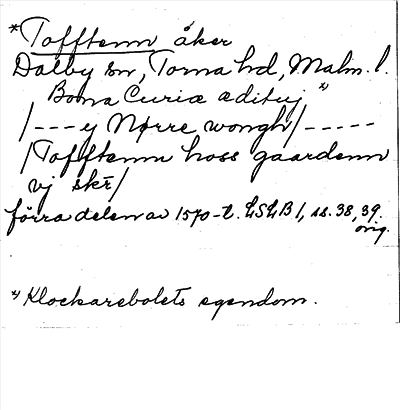 *Tofftenn åker
Dalby sn, Torna hd, Malm. l.
Bona Curiæ ædituj *)
/---ej Nørre wongh/-----
/Tofftenn hoss gaardenn
vj skr/
förra delen av 1570-t. LSLB 1, ss. 38, 39.
orig.
*) Klockarebolets egendom.